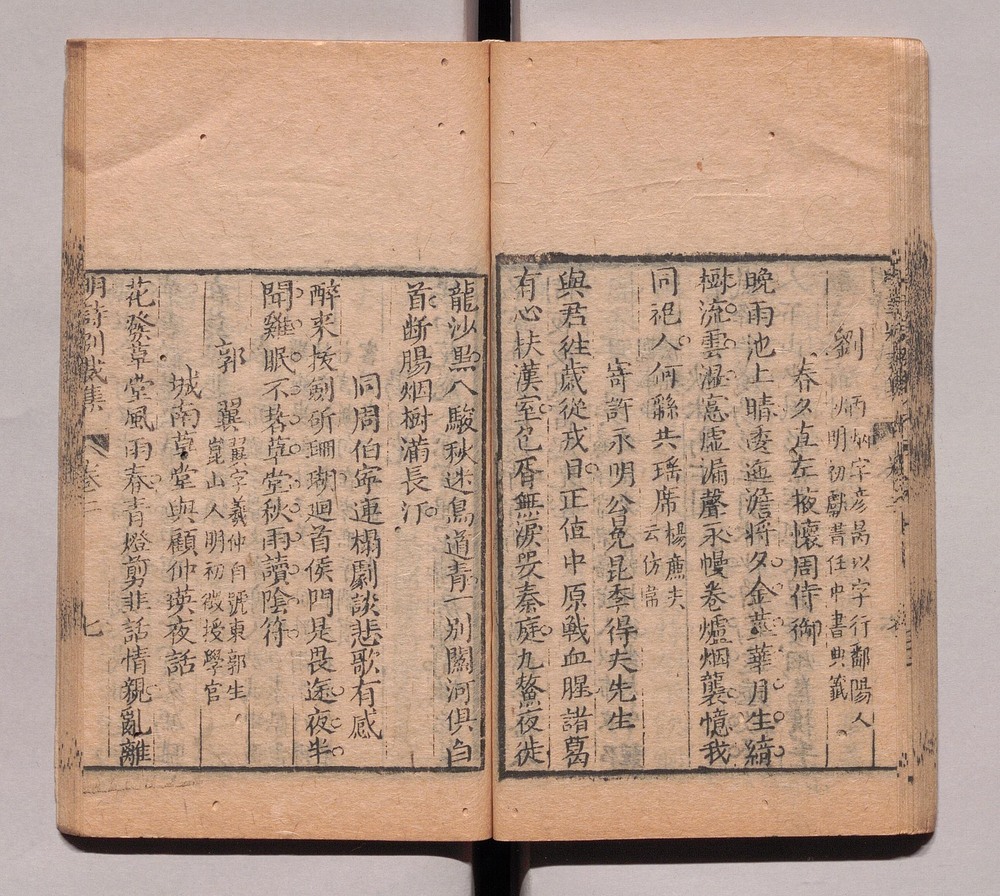 劉　炳字彥昺以字行鄱陽人
明初獻書任中書典籤
春夕直左掖懷周侍御
晚雨池上晴凌迤澹將夕金莖華月生綺
樹流雲濕窓虛漏聲永幔卷爐烟襲憶我
同袍人何繇共瑤席楊廉夫
云仿常
寄許永明公冕昆季得夫先生
與君往歲從戎日正值中原戰血腥諸葛
有心扶漢室包胥無淚哭秦庭九鰲夜徙
龍沙黑八駿秋迷鳥道青一別關河俱白
首斷腸烟樹滿長汀
同周伯寧連榻劇談悲歌有感
醉來拔劍斫珊瑚迴首侯門是畏途夜半
聞雞眠不著草堂秋雨讀陰符
郭　翼翼字羲仲自號東郭生
崑山人明初徵授學官
城南草堂與顧仲瑛夜話
花發草堂風雨春青燈剪韭話情親亂離
明詩別裁集　卷二　七